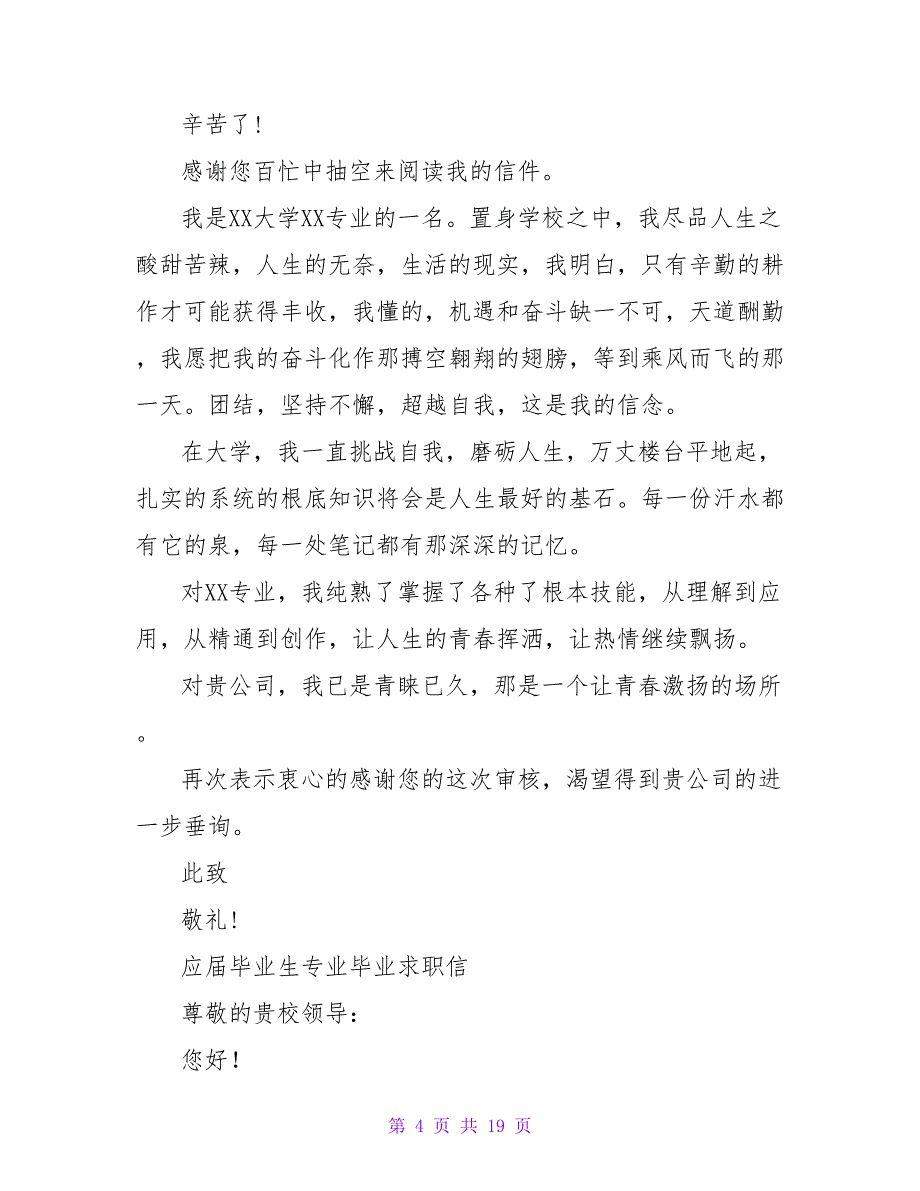 辛苦了!
感谢您百忙中抽空来阅读我的信件。
我是XX大学XX专业的一名。置身学校之中，我尽品人生之
酸甜苦辣，人生的无奈，生活的现实，我明白，只有辛勤的耕
作才可能获得丰收，我懂的，机遇和奋斗缺一不可，天道酬勤
，我愿把我的奋斗化作那搏空翱翔的翅膀，等到乘风而飞的那
一天。团结，坚持不懈，超越自我，这是我的信念。
在大学，我一直挑战自我，磨砺人生，万丈楼台平地起，
扎实的系统的根底知识将会是人生最好的基石。每一份汗水都
有它的泉，每一处笔记都有那深深的记忆。
对XX专业，我纯熟了掌握了各种了根本技能，从理解到应
用，从精通到创作，让人生的青春挥洒，让热情继续飘扬。
对贵公司，我已是青睐已久，那是一个让青春激扬的场所
。
再次表示衷心的感谢您的这次审核，渴望得到贵公司的进
一步垂询。
此致
敬礼!
应届毕业生专业毕业求职信
尊敬的贵校领导：
您好！
第 4 页 共 19 页